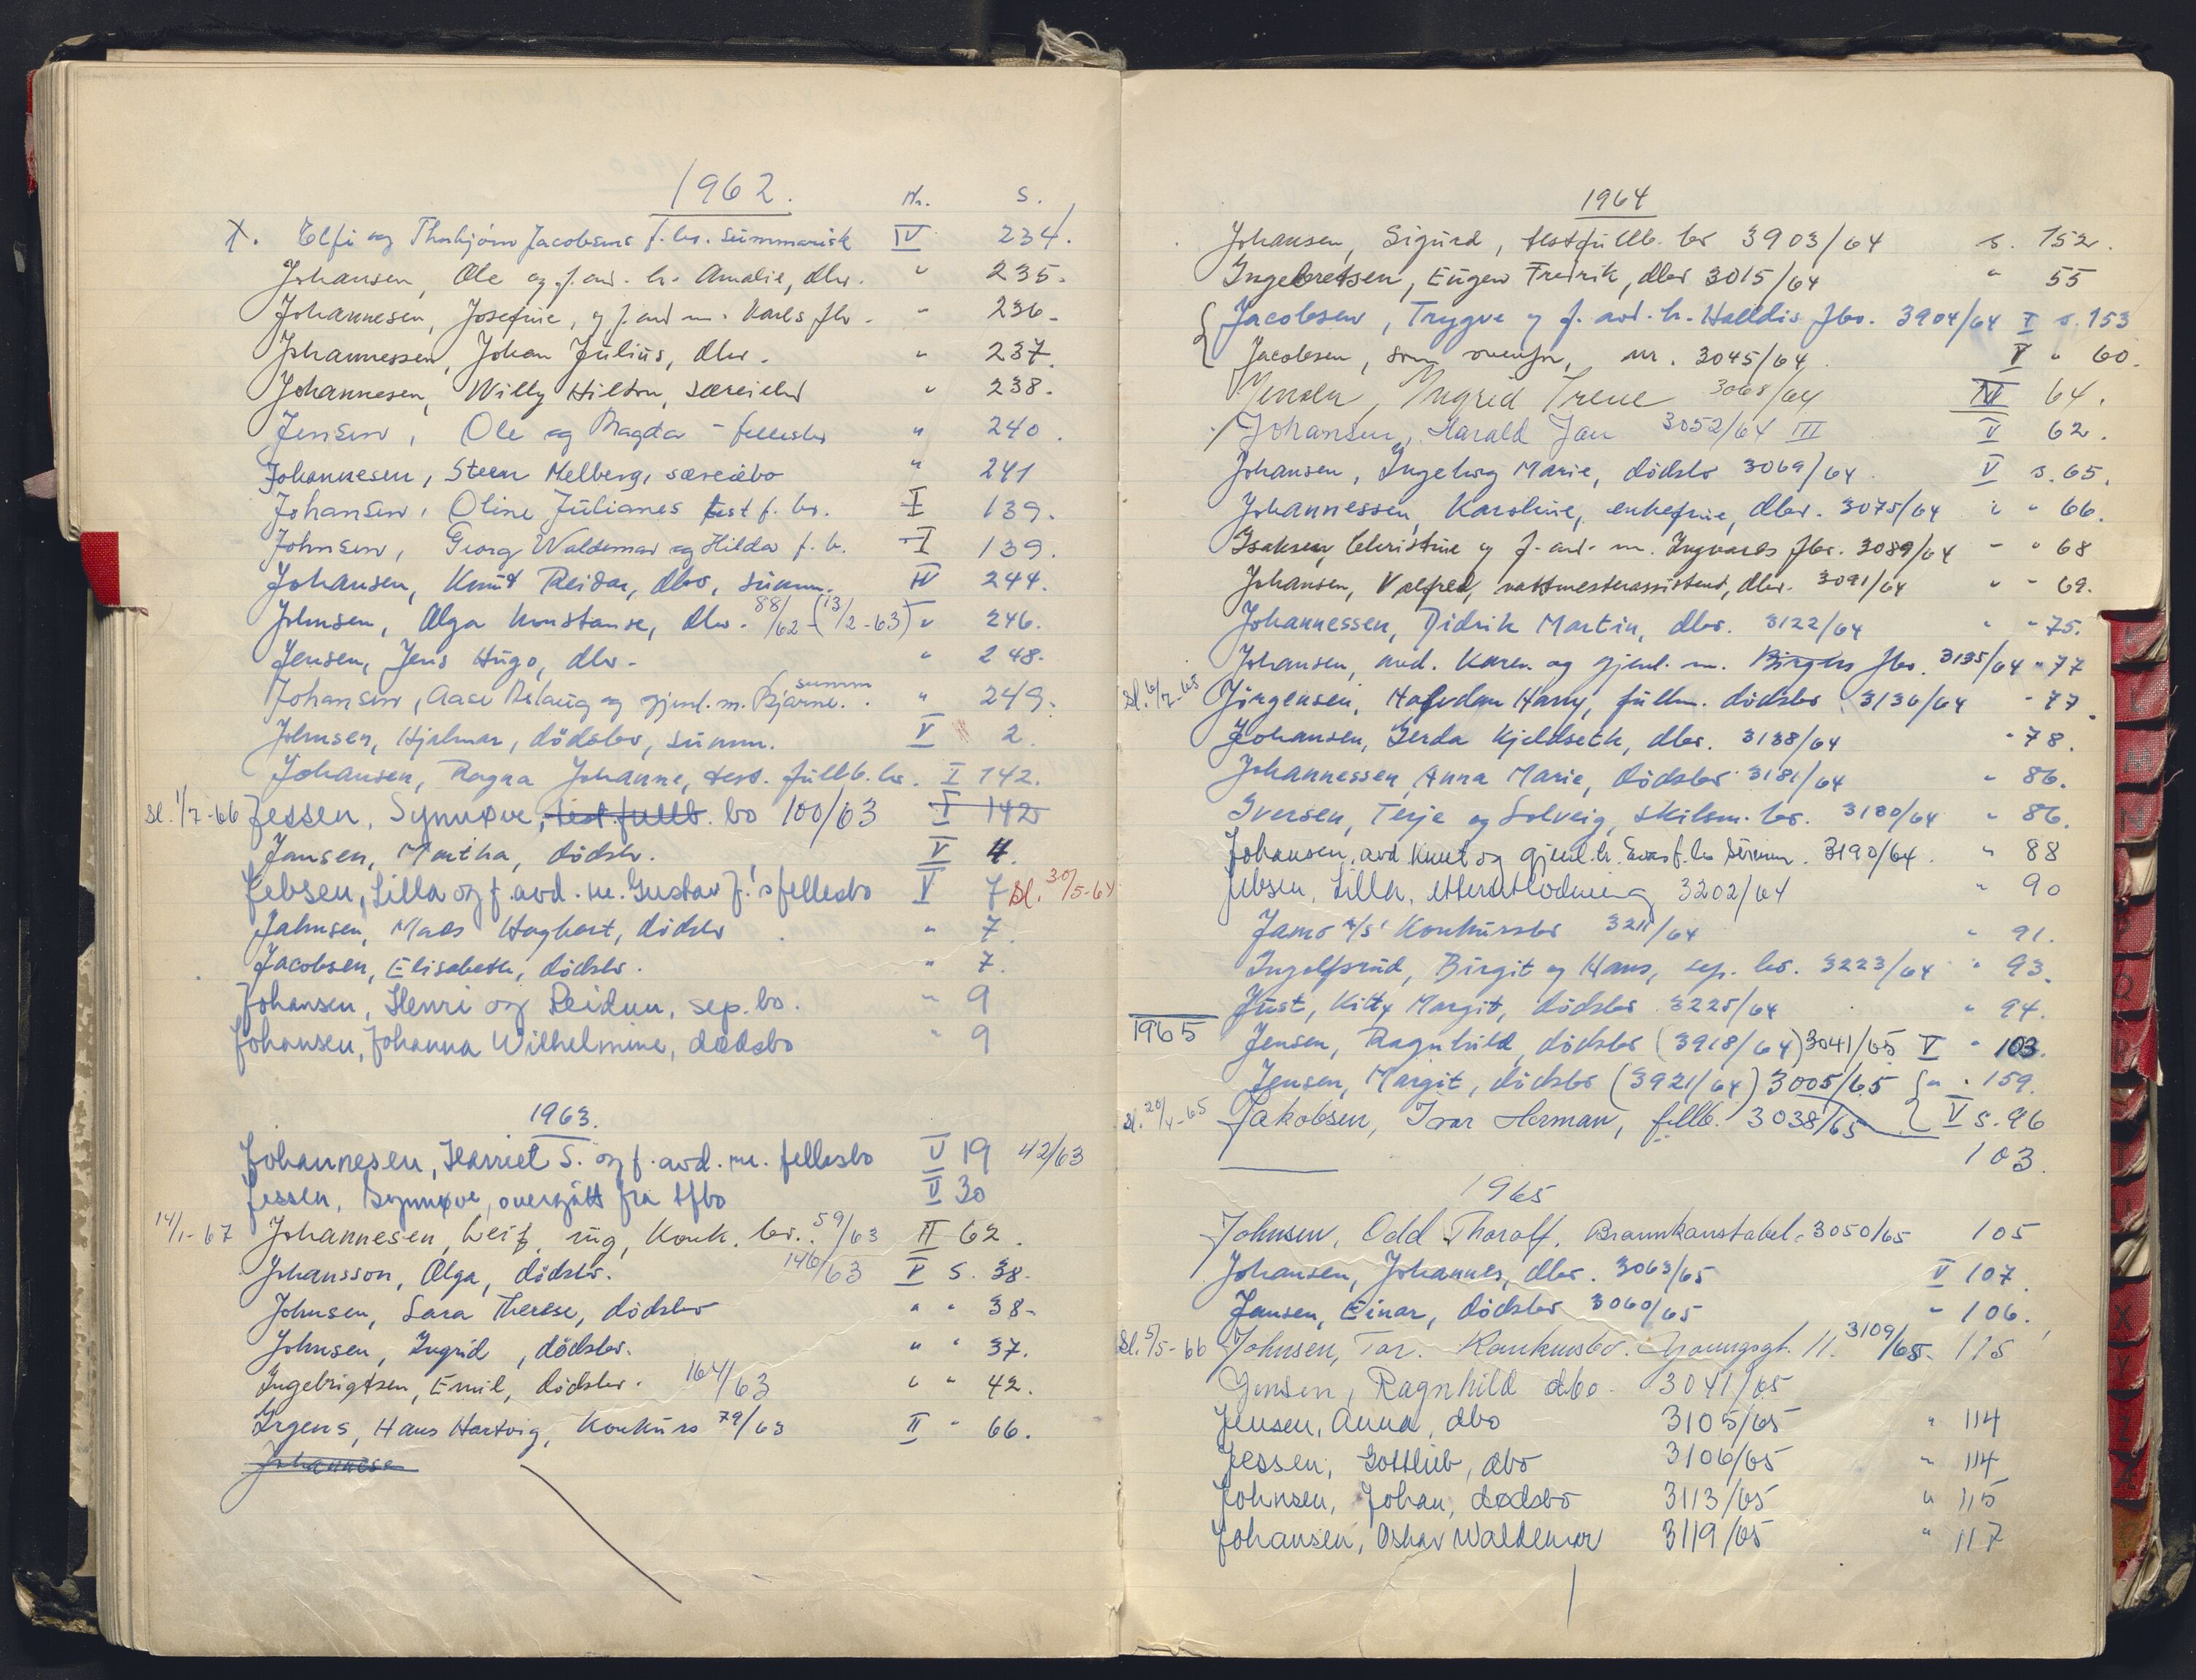 1962.
Nr. S.
X. Elfi og Thorbjørn Jacobsens f.bo. summarisk IV 234.
Johansen, Ole og f. avd. h. Amalie, dbo. " 235.
Johannesen, Josefine, og f. avd m. Karls fbo. " 236.
Johannessen, Johan Julius, dbo. " 237.
Johannesen, Willy Hilson, særeiebo " 238.
Jensen, Ole og Magda - fellesbo " 240.
Johannesen, Steen Melberg, særeiebo " 241
Johansen, Oline Julianes test f. bo. I 139.
Johnsen, Georg Waldemar og Hilda f. b. I 139.
Johansen, Knut Reidar, dbo, summ. IV 244.
Johnsen, Olga Konstanse, dbo. 88/62 - (13/2-63) " 246.
Jensen, Jens Hugo, dbo. " 248.
Johansen, Aase Aslaug og gjenl. m. Bjarne. summ. " 249.
Johnsen, Hjalmar, dödsbo, summ. V 2.
Johansen, Ragna Johanne, test. fullb. bo. I 142.
Sl. 1/7-66 Jessen, Synnøve, test. fullb. bo 100/63 I 142
Jansen, Martha, dödsbo. V 4.
Jebsen, Lilla og f. avd. m. Gustav J.'s fellesbo V 7 Sl. 30/5-64
Jahnsen, Mads Hagbart, dödsbo " 7.
Jacobsen, Elisabeth, dödsbo. " 7.
Johansen, Henri og Reidun, sep. bo. " 9
Johansen, Johanna Wilhelmine, dødsbo " 9
1963.
Johannesen, Harriet S. og f. avd. m. fellesbo V 19 42/63
Jessen, Synnøve, overgått fra tfbo V 30
14/1-67 Johannesen, Leif, ing, Konk. bo. 59/63 II 62.
Johansson, Olga, dödsbo. 146/63 V S. 38.
Johnsen, Sara Therese, dödsbo " " 38-
Johnsen, Ingrid, dödsbo. " " 37.
Ingebrigtsen, Emil, dödsbo. 164/63 " " 42.
Irgens, Hans Hartvig, Konkurs 79/63 II " 66.
Johannese
1964
Johansen, Sigurd, testfullb. bo 3903/64 s. 152.
Ingebretsen, Eugen Fredrik, dbo 3015/64 " 55
Jacobsen, Trygve og f. avd. h. Halldis fbo. 3904/64 I s. 153
Jacobsen, som ovenfor, nr. 3045/64 V " 60.
Jensen, Ingrid Irene 3068/64 IV 64.
Johansen, Harald Jan 3052/64 III V 62.
Johansen, Ingeborg Marie, dödsbo 3069/64 V s. 65.
Johannessen, Karoline, enkefrue, dbo. 3075/64 " " 66.
Isaksen, Christine og f. avd. m. Ingvards fbo. 3089/64 " " 68
Johansen, Valfred, vaktmesterassistent, dbo. 3091/64 " " 69.
Johannessen, Didrik Martin, dbo. 3122/64 " " 75.
Johansen, avd. Karen og gjenl. m. Birgers fbo. 3135/64 " 77
Sl. 6/7-65 Jörgensen, Halvdan Harry, fullm. dödsbo 3136/64 " 77.
Johansen, Gerda Kjeldseth, dbo. 3138/64 " 78.
Johannessen, Anna Marie, dödsbo 3181/64 " 86.
Iversen, Terje og Solveig, skilsm. bo. 3180/64 " 86.
Johansen, avd. Knut og gjenl. h. Evas f. bo Summ. 3190/64. " 88
Jebsen, Lilla, etterutlodning 3202/64 " 90
Jamo A/S' Konkursbo 3211/64 " 91.
Ingolfsrud, Birgit og Hans, sep. bo. 3223/64 " 93.
Just, Kitty Margit, dödsbo 3225/64 " 94.
1965 Jensen, Ragnhild, dödsbo (3918/64) 3041/65 V " 103.
Jensen, Margit, dödsbo (3921/64) 3005/65 " " 159.
Sl. 20/4-65 Jakobsen, Ivar Herman, fullb. 3038/65 V s. 96
103.
1965
Johnsen, Odd Thoralf, Brannkonstabel. 3050/65 105
Johansen, Johannes, dbo. 3063/65 V 107.
Jansen, Einar, dödsbo 3060/65 " 106.
Sl. 5/5-66 Johnsen, Tor. Konkursbo. Youngsgt. 11. 3109/65. 115
Jensen, Ragnhild dbo. 3041/65
Jensen, Anna, dbo 3105/65 " 114
Jessen, Gottlieb, dbo 3106/65 " 114
Johnsen, Johan, dødsbo 3113/65 " 115
Johansen, Oskar Waldemar 3119/65 " 117